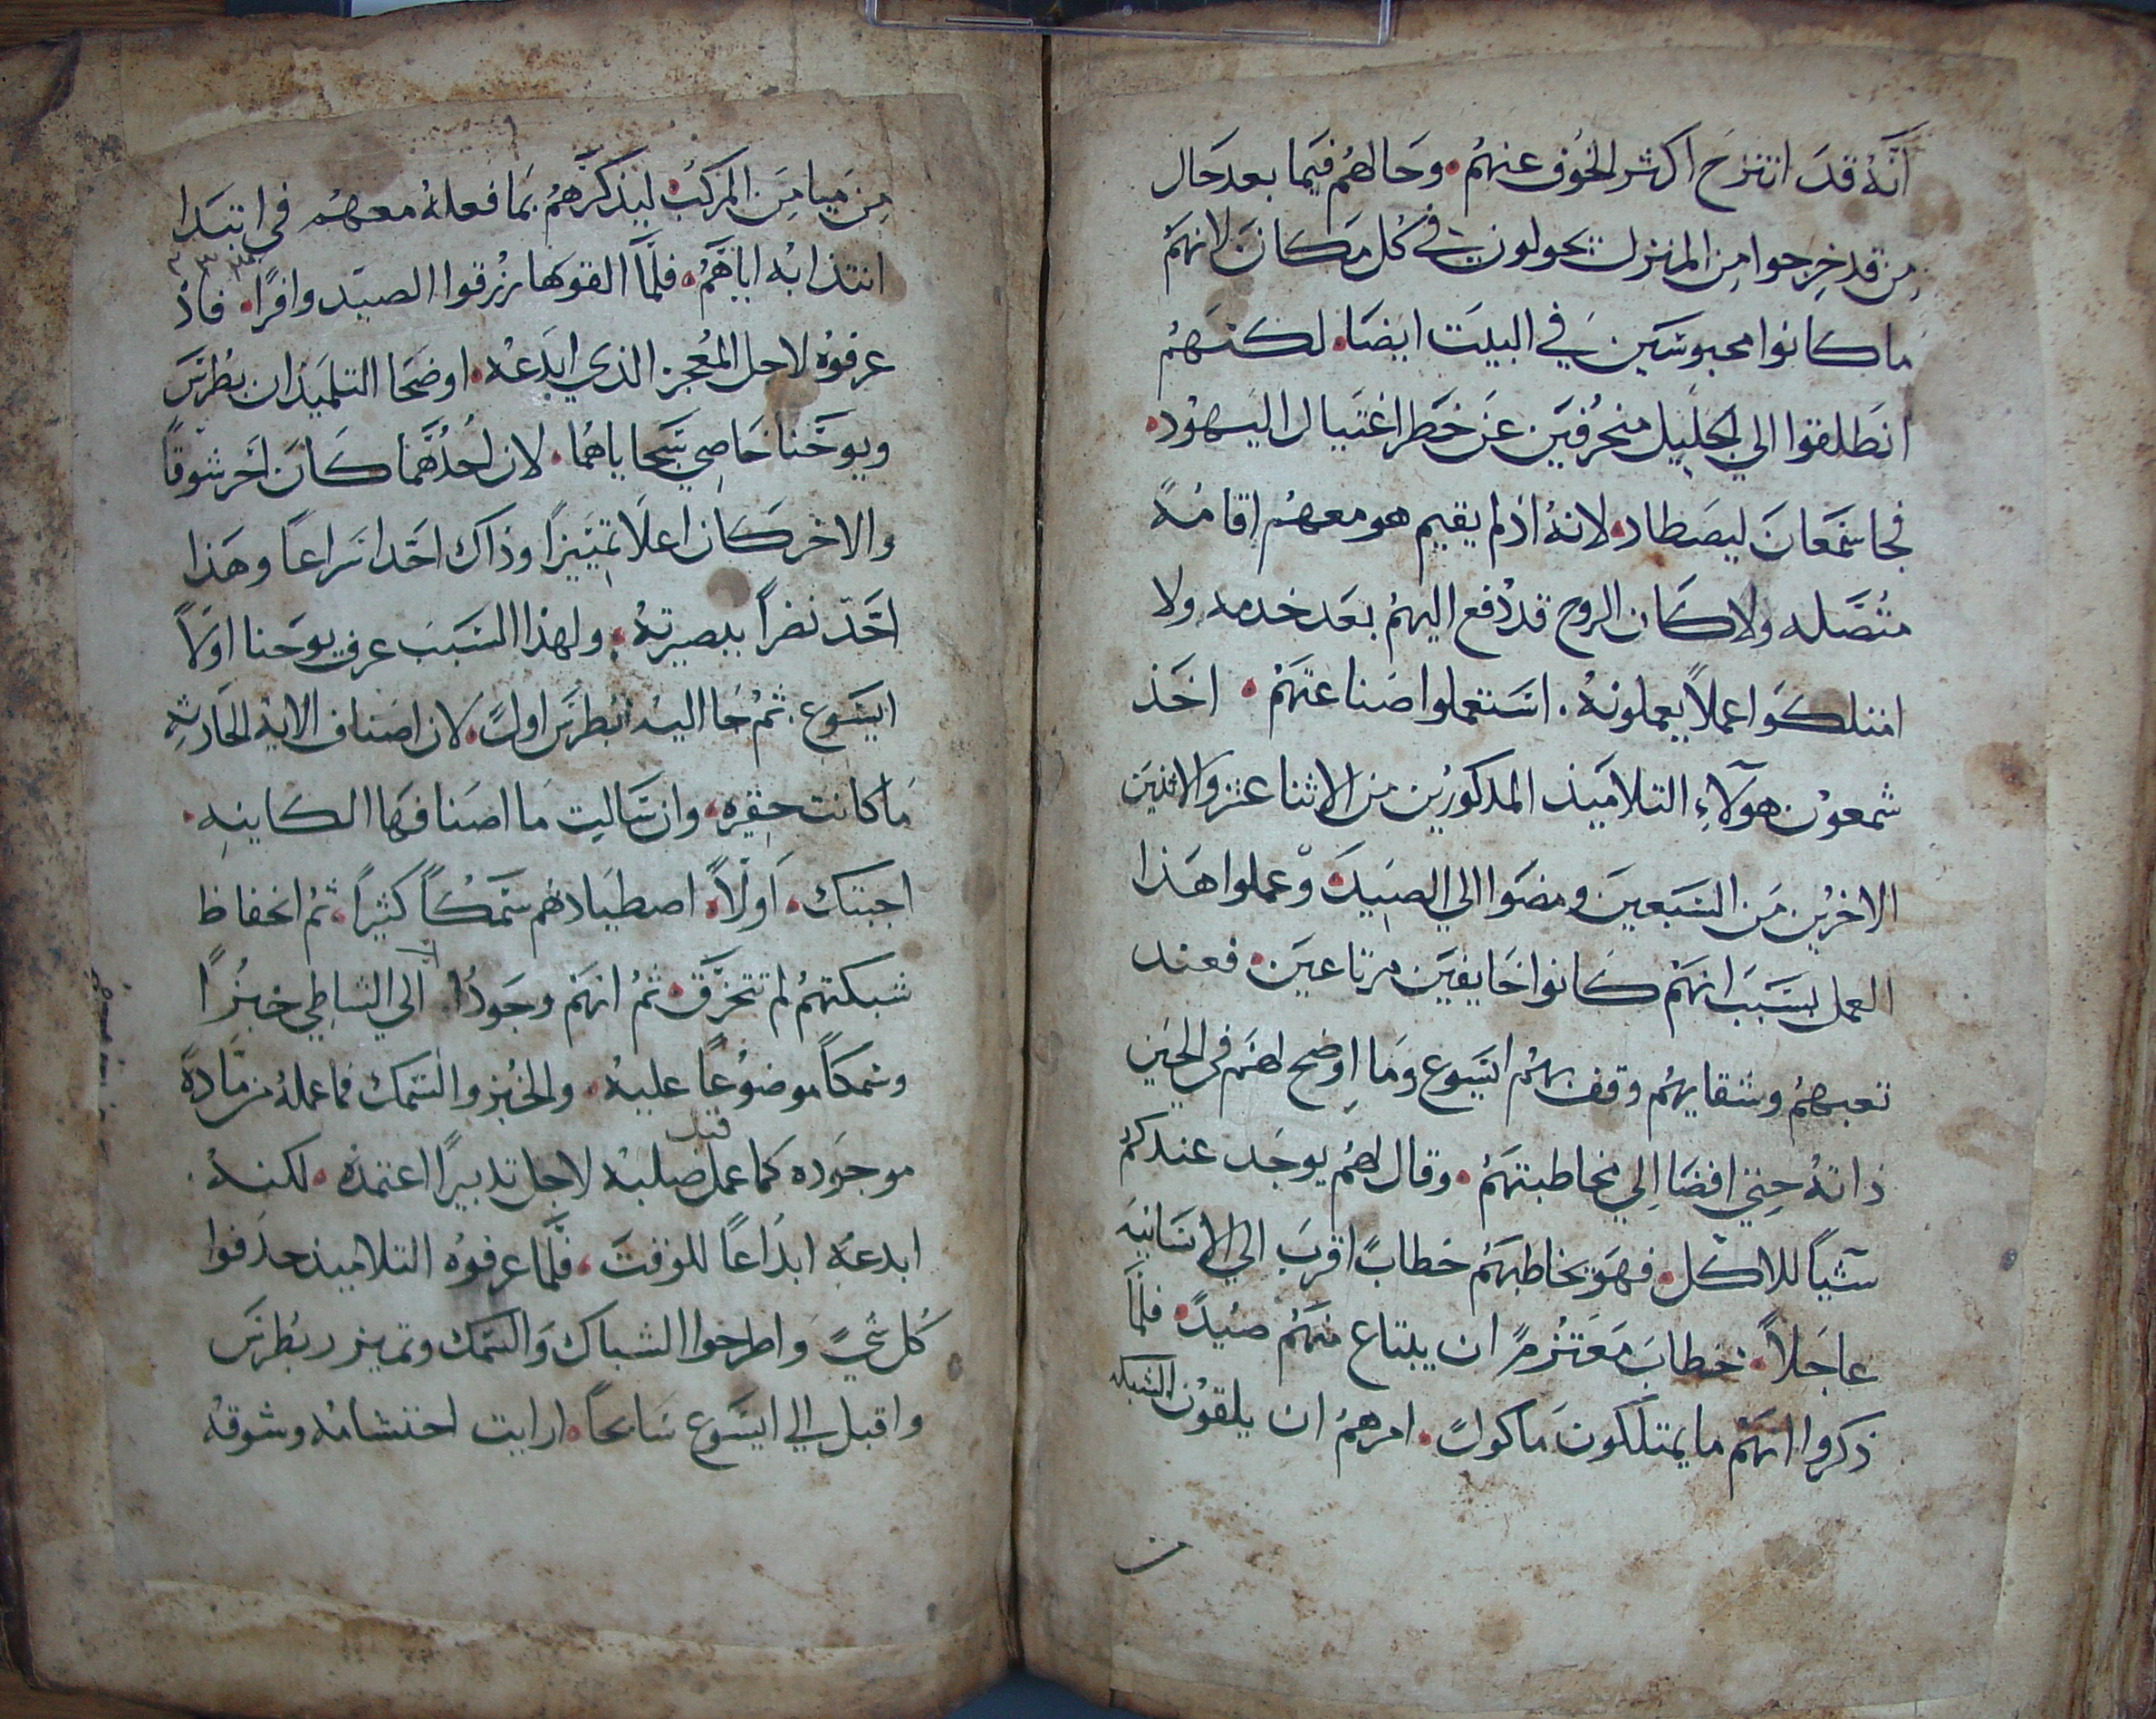 انَّهُ قدَ انتزح اكثر الخوُف عنهمُ. وحَالهُم فيَما بعد حَال
مِن قد خرجوا مِن المنزل يحولون في كُل مكَانَ لانهَمُ
ما كانوا محبوسَين في البيَت ايضَا. لكنهَمُ
انطَلقوا الي الجليِل منحُرفيَن عَن خطَر اغتيَال اليهوُد.
فجا شمَعانَ ليصَطاد. لانهُ اذ لم يقيم هو معهمُ اقامُةً
متُصَله ولا كاَن الروح قد دُفع اليهمُ بعَد خدمه ولا
امتلكوَا عملاً يعملونهُ. استَعملوا صَناعتهَمُ. اخَذ
شمعوُن هوَلآءِ التلاميَذ المدكورُين من الاثنا عشر والاثنين
الاخرُين مَن السَبعينَ ومضَوا الي الصيَد. وعملوا هَذا
العمل بسَببَ انهَمُ كَانوا خَايفيَن مرتاعينَ. فعند
تعبهمُ وشقايهمُ وقف بهمُ ايسَوع ومَا اوضح لهَم في الحيَن
ذاتهُ حتي افضَا الِي مخاطبتهَمُ. وقال لهمُ يوجَد عندكم
شَياً للاكل. فهوَ يخاطبهَمُ خطابً اقربَ الي الانسَانيه
عاجَلاً. خطابَ معَتزمً ان يبتاع منهَمُ صيُدً. فلمَّا
ذكروا انهَمُ ما يمتلكونَ مَاكولً. امرهمُ ان يلقوُن الشبكه
مِن ميامِنَ المركبُ ليذكرَّهمُ بمَا فعلهُ معهمُ في ابتدَا
انتذابُه اياهَّمُ. فلمَّا القوهَا رزُقوا الصيَد وافرًا. فاذُ
عرفوهُ لاجل المعُجز الذي ابدَعهُ. اوضحَا التلميَذان بطُرسَ
ويوحَنا خاصِي سَجاياهمُا. لان احدُهمَا كاَنَ احَر شوقاً
والاخرَ كاَن اعلاَ تميَيزاً وذاك احَد اسَراعاً وهَذا
احَدّ نضراً ببصيرتهُ. ولهذا السَببَ عرف يوحَنا اولاً
ايسَوع. ثمُ جَا اليه بُطرسَ اولً. لان اصَناف الايهُ الحَادثه
مَا كانت حقيره. وان سَاليت مَا اصَنافهَا الكاينهِ.
اجبتك. اَولاً. اصطيَادهُم سَمَكاً كثيراً. ثمُ انحفاظ
شبكتهمُ لم تتخزَّق. ثمُ انهمَ وجَدوُا الي الشاطِي خبزُاً
وسَمكاً موضوُعاً عليهُ. والخبُز والسَمك فما عملهُ من مَادهً
موجَوده كما عمل قبل صلبهُ لاجل تدبيرًا اعتمدهُ. لكنهُ
ابدعهَ ابدَاعاً للوقتَ. فلَّما عرفوهُ التلاميذ حذَفوا
كُل شيً واطرحوا الشباك وَالسَمك وتميزر بطُرسَ
واقبل الي ايسَوع سَابحاً. ارايت احتشامهُ وشوقهُ